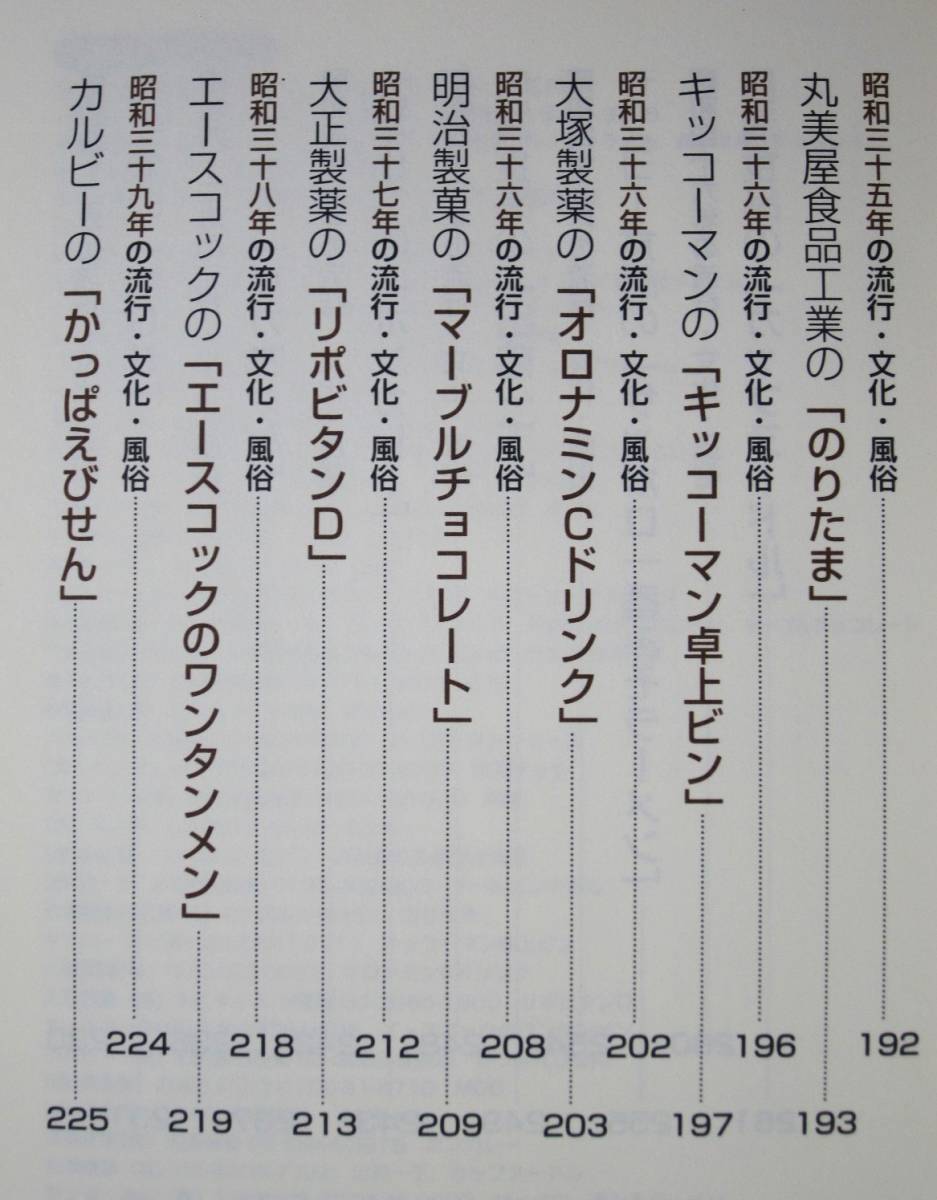 昭和三十五年の流行・文化・風俗 192
丸美屋食品工業の「のりたま」 193
昭和三十六年の流行・文化・風俗 196
キッコーマンの「キッコーマン卓上ビン」 197
昭和三十六年の流行・文化・風俗 202
大塚製薬の「オロナミンCドリンク」 203
昭和三十六年の流行・文化・風俗 208
明治製菓の「マーブルチョコレート」 209
昭和三十七年の流行・文化・風俗 212
大正製薬の「リポビタンD」 213
昭和三十八年の流行・文化・風俗 218
エースコックの「エースコックのワンタンメン」 219
昭和三十九年の流行・文化・風俗 224
カルビーの「かっぱえびせん」 225